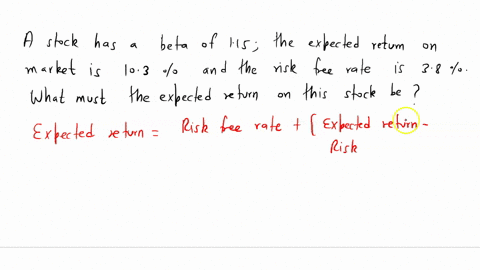 A stock has a beta of 1.15; the expected return on
market is 10.3 % and the risk free rate is 3.8 %.
What must the expected return on this stock be ?
Expected return = Risk free rate + [ Expected return -
Risk